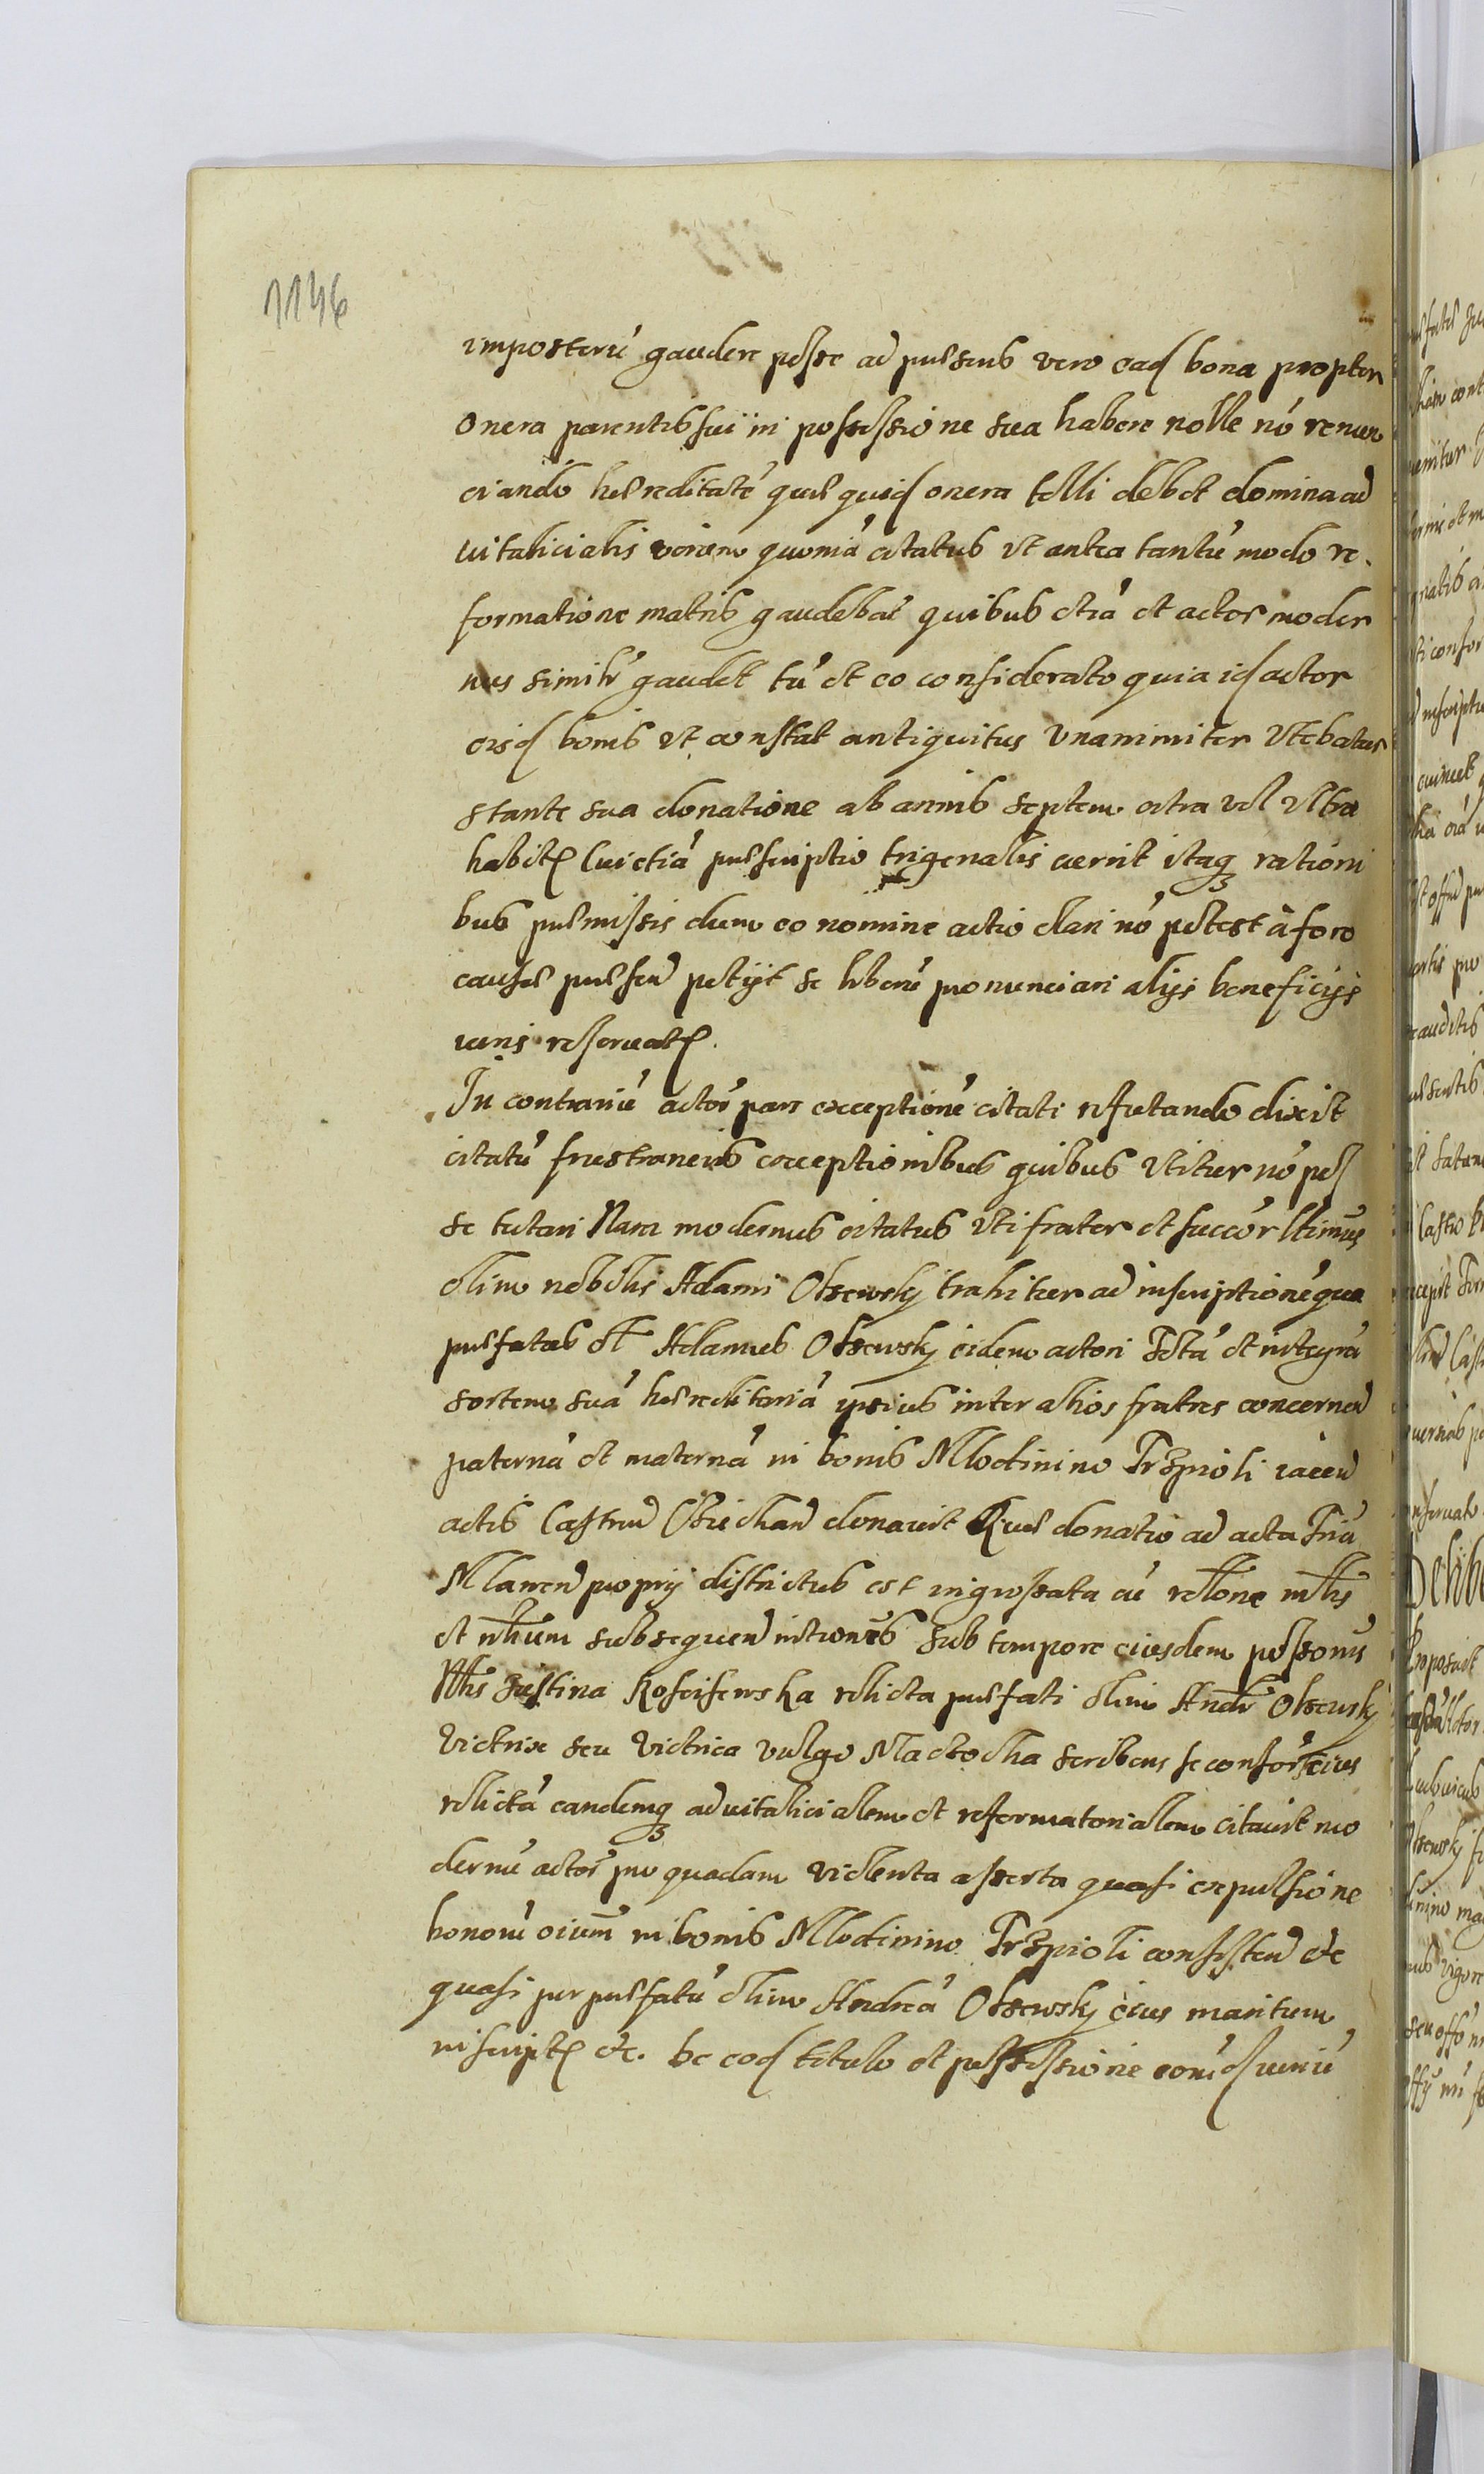 1146
imposterú gaudere posse ad praesens vero ead bona propter
onera parentis sui in possessione sua habere nolle nó renun
ciando haereditaté quae quid onera tolli debet domina ad
vitalicialis quoniá citatus vt antea tantú modo re
formatione matris gaudebat quibus etiá et actor moder
nus similr gaudet tú et eo considerato quia id actor
eisd bonis vt constat antiquitus vnanimiter vtebatur
stante sua donatione ab annis septem citra vel vltra
habit praescriptio trigenalis itaq rationi
bus praemissis dum eo nomine actio dari nó potest à foro
causae praesen petijt se liberú pronunciari alijs beneficijs
iuris reseruat.
In contrariú actor pars exceptioné citati refutando dixit
citatú frustraneis exceptionibus quibus vtitur nó pos
se tutari Nam modernus citatus vti frater et succor ltimus
olim nobilis Adami Olszewsky trahitur ad inscriptioné qua
praefatus ol Adamus Olszewsky eidem actori totá et integrá
sortem suá haereditariá ipsius inter alios fratres concernen
paterná et materná in bonis Mlodinino Trzpioli iacen
actis Castren Ciechan donauit Quae donatio ad acta Tria
Mlawen proprij districtus est ingrossata cú reltone mtis
et nblium subsequen sub tempore eiusdem possonis
Nblis Justina Kosciesewska relicta praefati olim Andr Olszewsky
victrix seu victrica vulgo Maczocha scribens se consor eius
relictá eandemq aduitalicialem et reformatorialem citauit mo
dernú actor pro quadam violenta asserta quasi expulsione
bonorú oium in bonis Mlodinino Trzpioli consisten etc
quasi per praefatú olim Andreá Olszewsky eius maritum
inscript etc. De eod titulo et possessione eorúd iuriú